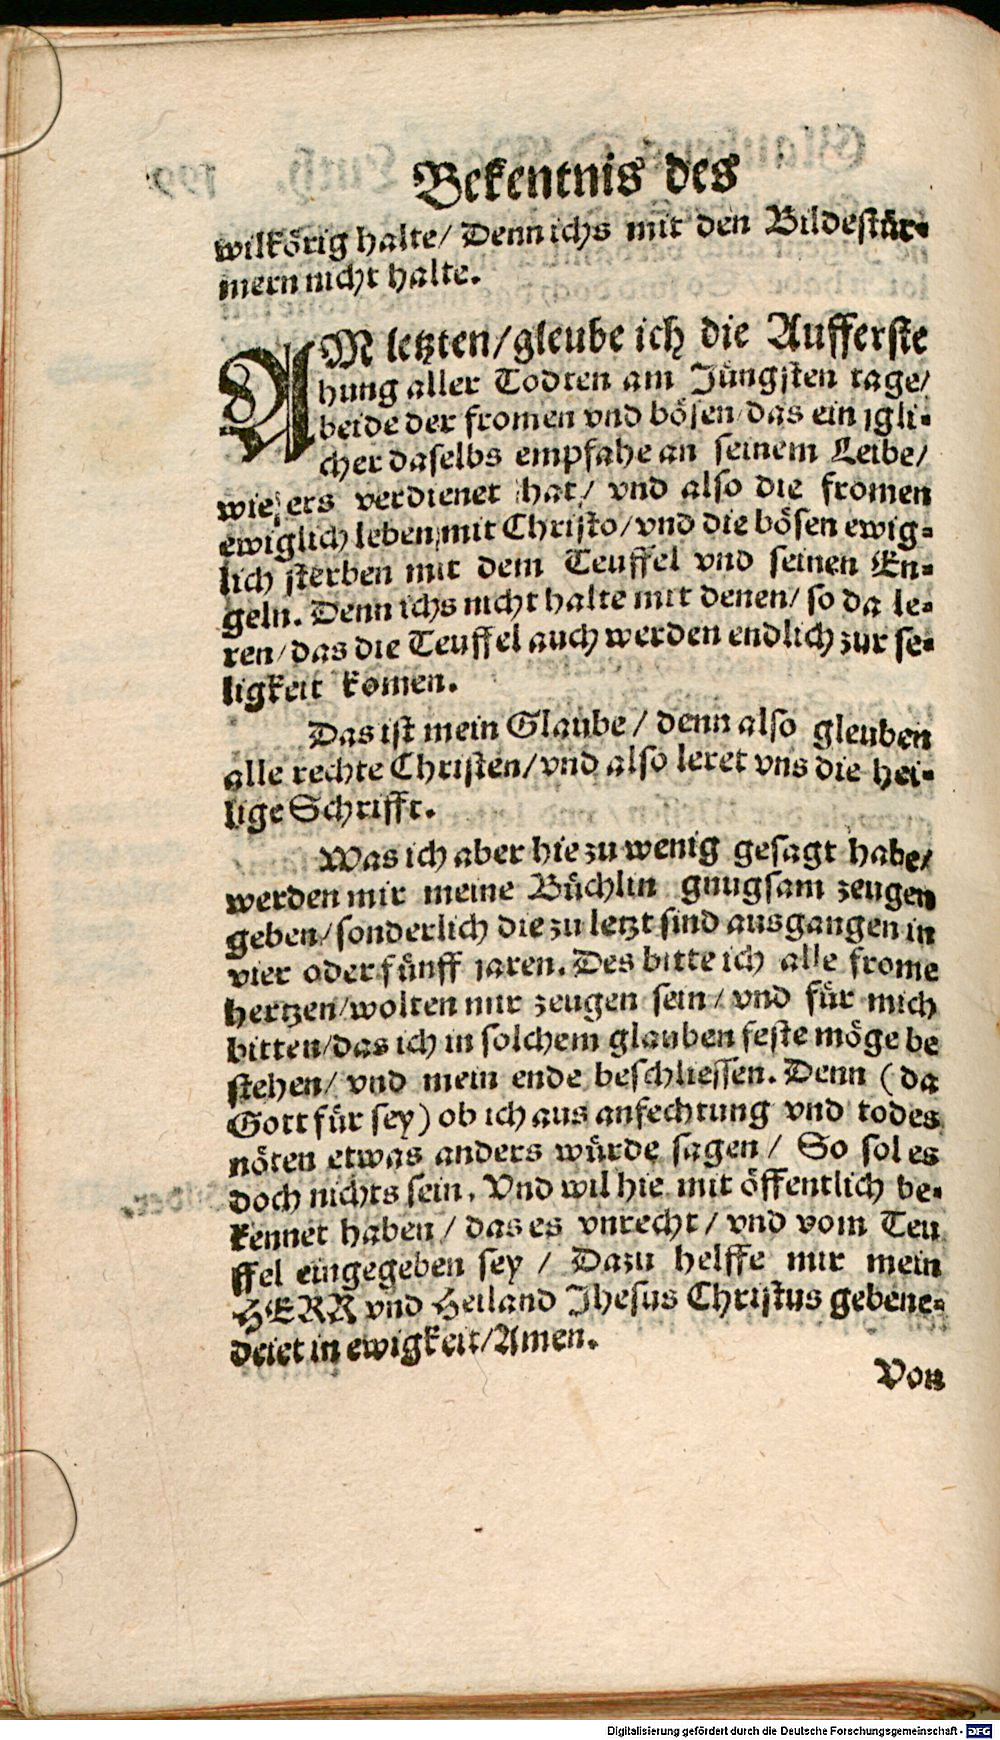 Bekentnis des
wilkörig halte/ Denn ichs mit den Bildestür-
mern nicht halte.
AM letzten/gleube ich die Aufferste
hung aller Todten am Jüngsten tage/
beide der fromen vnd bösen/das ein jgli-
cher daselbs empfahe an seinem Leibe/
wie ers verdienet hat/ vnd also die fromen
ewiglich leben mit Christo/vnd die bösen ewig-
lich sterben mit dem Teuffel vnd seinen En-
geln. Denn ichs nicht halte mit denen/ so da le-
ren/das die Teuffel auch werden endlich zur se-
ligkeit komen.
Das ist mein Glaube/ denn also gleuben
alle rechte Christen/vnd also leret vns die hei-
lige Schrifft.
Was ich aber hie zu wenig gesagt habe/
werden mir meine Büchlin gnugsam zeugen
geben/sonderlich die zu letzt sind ausgangen in
vier oder fünff jaren. Des bitte ich alle frome
hertzen/wolten mir zeugen sein/ vnd für mich
bitten/das ich in solchem glauben feste möge be
stehen/ vnd mein ende beschliessen. Denn (da
Gott für sey) ob ich aus anfechtung vnd todes
nöten etwas anders würde sagen/ So sol es
doch nichts sein. Vnd wil hie mit öffentlich be-
kennet haben/ das es vnrecht/ vnd vom Teu
ffel eingegeben sey/ Dazu helffe mir mein
HERR vnd Heiland Jhesus Christus gebene-
deiet in ewigkeit/Amen.
Von
Digitalisierung gefördert durch die Deutsche Forschungsgemeinschaft - DFG